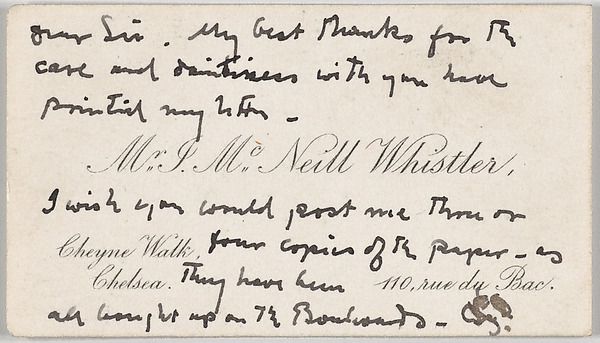 Dear Sir. My best thanks for the
care and daintiness with you have
printed my letter –
Mr. J. Mc. Neill Whistler,
I wish you would post me three or
Cheyne Walk, four copies of the paper – as
Chelsea. They have been 110, rue du Bac.
all bought up on the Boulevards –